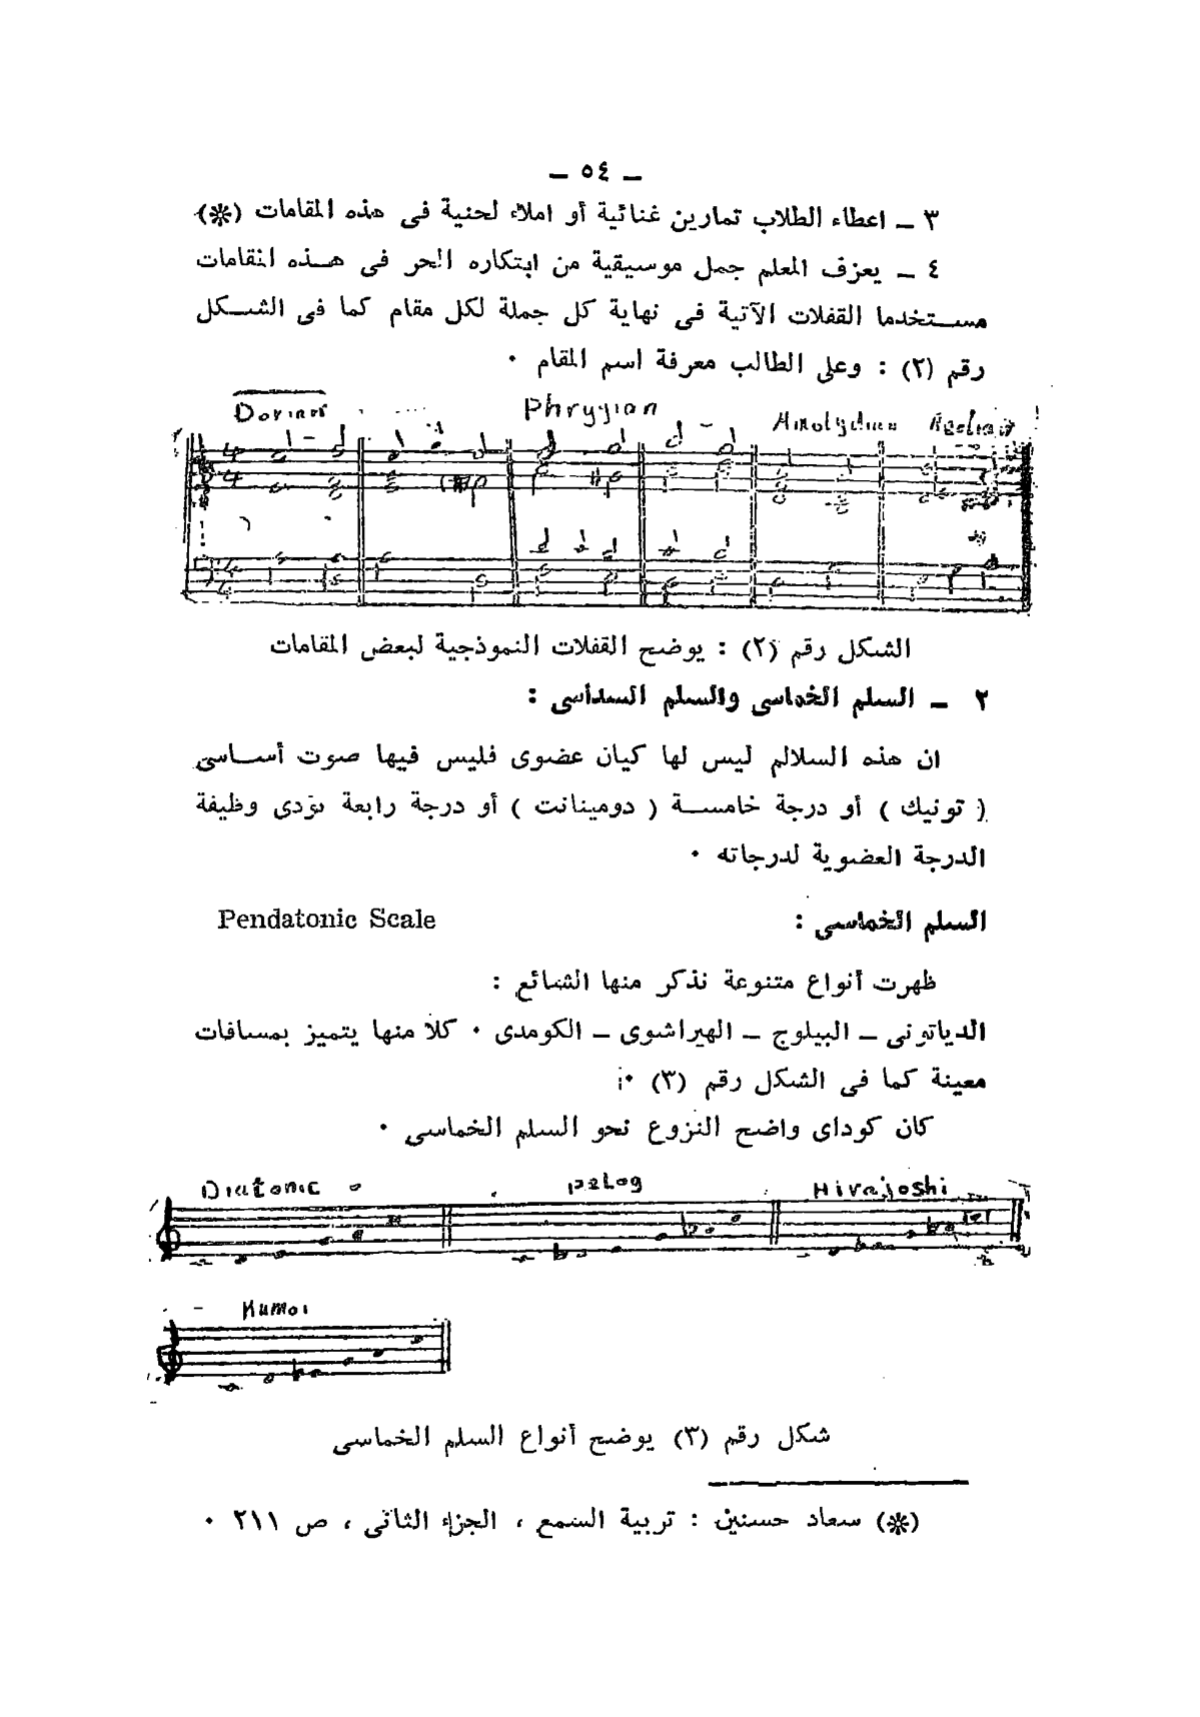 ــ ٥٤ ــ
٣ ــ اعطاء الطلاب تمارين غنائية أو املاء لحنية فى هذه المقامات (❊)
٤ ــ يعزف المعلم جمل موسيقية من ابتكاره الحر فى هــذه المقامات
مســتخدما القفلات الآتية فى نهاية كل جملة لكل مقام كما فى الشــكل
رقم (٢) : وعلى الطالب معرفة اسم المقام ٠
Dorian Phrygian Mixolydian Aeolian
الشكل رقم (٢) : يوضح القفلات النموذجية لبعض المقامات
٢ ــ السلم الخماسى والسلم السداسى :
ان هذه السلالم ليس لها كيان عضوى فليس فيها صوت أســاسى
( تونيك ) أو درجة خامســة ( دومينانت ) أو درجة رابعة تؤدى وظيفة
الدرجة العضوية لدرجاته ٠
السلم الخماسى : Pendatonic Scale
ظهرت أنواع متنوعة نذكر منها الشائع :
الدياتونى ــ البيلوج ــ الهيراشوى ــ الكومدى ٠ كلا منها يتميز بمسافات
معينة كما فى الشكل رقم (٣) ٠
كان كوداى واضح النزوع نحو السلم الخماسى ٠
Diatonic pelog Hirajoshi
Kumoi
شكل رقم (٣) يوضح أنواع السلم الخماسى
(❊) سعاد حسنين : تربية السمع ، الجزء الثانى ، ص ٢١١ ٠